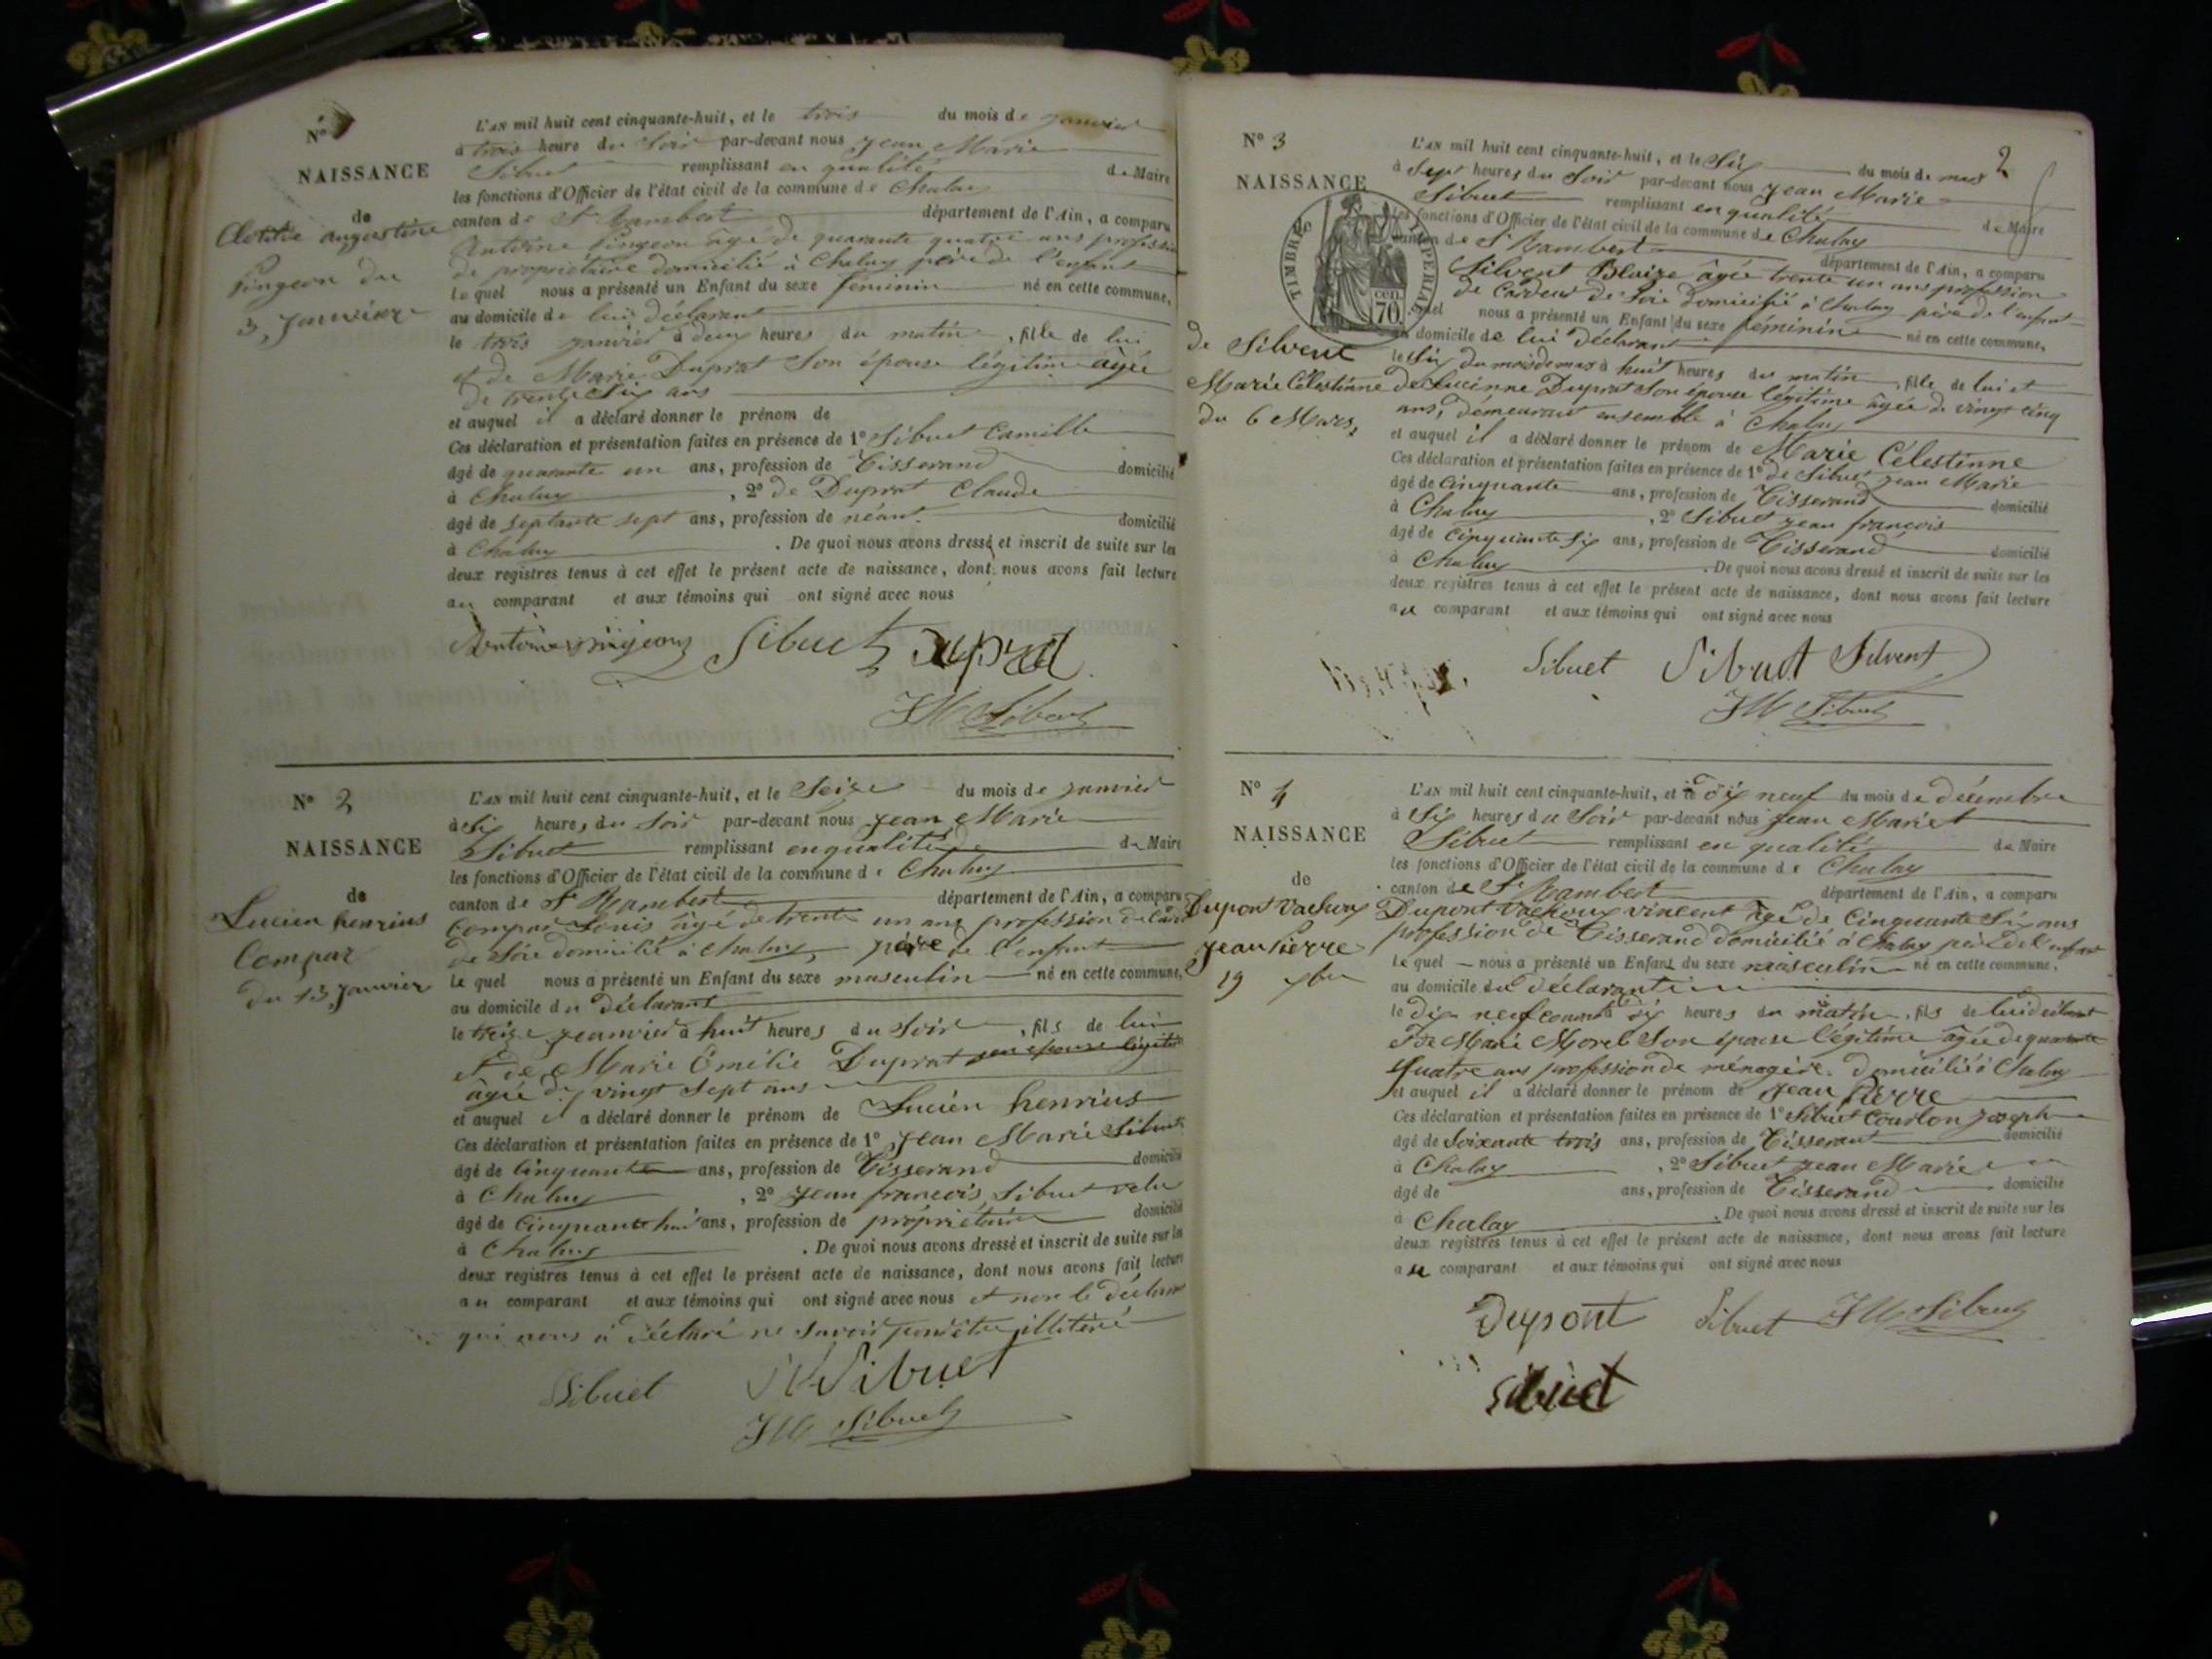 N°
NAISSANCE
de
Clotilde augustine
Pingeon du
3, Janvier
L'AN mil huit cent cinquante-huit, et le trois du mois de janvier
à trois heure du Soir par-devant nous Jean Marie
Sibuet remplissant en qualité de Maire
les fonctions d'Officier de l'état civil de la commune de Chaley
canton de St Rambert département de l'Ain, a comparu
Antoine Pingeon âgé de quarante quatre ans profession
de propriétaire domicilié à Chaley père de l'enfant
Lequel nous a présenté un Enfant du sexe féminin né en cette commune,
au domicile de lui déclarant
le trois janvier à deux heures du matin, fille de lui
et de Marie Duprat Son épouse légitime âgée
de trente Six ans
et auquel il a déclaré donner le prénom de
Ces déclaration et présentation faites en présence de 1° Sibuet Camille
âgé de quarante un ans, profession de Tisserand domicilié
à Chaley, 2° de Duprat Claude
âgé de septante sept ans, profession de néant domicilié
à Chaley. De quoi nous avons dressé et inscrit de suite sur les
deux registres tenus à cet effet le présent acte de naissance, dont nous avons fait lecture
au comparant et aux témoins qui ont signé avec nous
Antoine pingeon Sibuet Duprat
JM Sibuet
N° 2
NAISSANCE
de
Lucien henrius
Compar
du 13, Janvier
L'AN mil huit cent cinquante-huit, et le Seize du mois de janvier
à Six heures du Soir par-devant nous Jean Marie
Sibuet remplissant en qualité de Maire
les fonctions d'Officier de l'état civil de la commune de Chaley
canton de St Rambert département de l'Ain, a comparu
Compar Louis âgé de trente un ans profession de
de Soie domicilié à Chaley père de l'enfant
Le quel nous a présenté un Enfant du sexe masculin né en cette commune,
au domicile du Déclarant
le treize jeanvier à huit heures du Soir, fils de lui
et de Marie Émélie Duprat son épouse légitime
âgée de vingt Sept ans
et auquel il a déclaré donner le prénom de Lucien henrius
Ces déclaration et présentation faites en présence de 1° Jean Marie Sibuet
âgé de Cinquante ans, profession de Tisserand domicilié
à Chaley, 2° Jean francois Sibuet
âgé de Cinquante huit ans, profession de propriétaire domicilié
à Chaley. De quoi nous avons dressé et inscrit de suite sur les
deux registres tenus à cet effet le présent acte de naissance, dont nous avons fait lecture
au comparant et aux témoins qui ont signé avec nous et non le Déclarant
qui nous à Déclaré ne Savoir pour être illitéré
Sibuet Sibuet
JM Sibuet
2
N° 3
NAISSANCE
TIMBRE IMPERIAL
70 cen.
de Silvent
Marie Célestinne
du 6 Mars,
L'AN mil huit cent cinquante-huit, et le Six du mois de mars
à Sept heures du Soir par-devant nous Jean Marie
Sibuet remplissant en qualité de Maire
les fonctions d'Officier de l'état civil de la commune de Chaley
canton de St Rambert département de l'Ain, a comparu
Silvent Blaize âgée trente un ans profession
de Cardeur de Soie domicilié à Chaley père de l'enfant
Lequel nous a présenté un Enfant du sexe féminin né en cette commune,
au domicile de lui Déclarant
le Six du mois de mars à huit heures du matin, fille de lui et
de Lucinne Duprat Son épouse légitime âgée de vingt cinq
ans, démeurant ensemble à Chaley
et auquel il a déclaré donner le prénom de Marie Célestinne
Ces déclaration et présentation faites en présence de 1° de Sibuet Jean Marie
âgé de Cinquante ans, profession de Tisserand domicilié
à Chaley, 2° Sibuet Jean francois
âgé de Cinquante Six ans, profession de Tisserand domicilié
à Chaley. De quoi nous avons dressé et inscrit de suite sur les
deux registres tenus à cet effet le présent acte de naissance, dont nous avons fait lecture
au comparant et aux témoins qui ont signé avec nous
Sibuet Sibuet Silvent
JM Sibuet
N° 4
NAISSANCE
de
Dupont Vachoux
Jean Pierre
19 xbre
L'AN mil huit cent cinquante-huit, et le Dix neuf du mois de décembre
à Six heures du Soir par-devant nous Jean Marie
Sibuet remplissant en qualité de Maire
les fonctions d'Officier de l'état civil de la commune de Chaley
canton de St Rambert département de l'Ain, a comparu
Dupont Vachoux vincent âgé de Cinquante Six ans
profession de Tisserand domicilié à Chaley père de l'enfant
Le quel nous a présenté un Enfant du sexe masculin né en cette commune,
au domicile du déclarant
le Dix neuf courant à Six heures du matin, fils de lui déclarant
et de Marie Morel Son épouse légitime âgée de quarante
quatre ans profession de ménagère domicilié à Chaley
et auquel il a déclaré donner le prénom de Jean Pierre
Ces déclaration et présentation faites en présence de 1° Sibuet Courlon Joseph
âgé de Soixante trois ans, profession de Tisserant domicilié
à Chaley, 2° Sibuet Jean Marie
âgé de ans, profession de Tisserand domicilié
à Chaley. De quoi nous avons dressé et inscrit de suite sur les
deux registres tenus à cet effet le présent acte de naissance, dont nous avons fait lecture
au comparant et aux témoins qui ont signé avec nous
Dupont Sibuet JM Sibuet
Sibuet